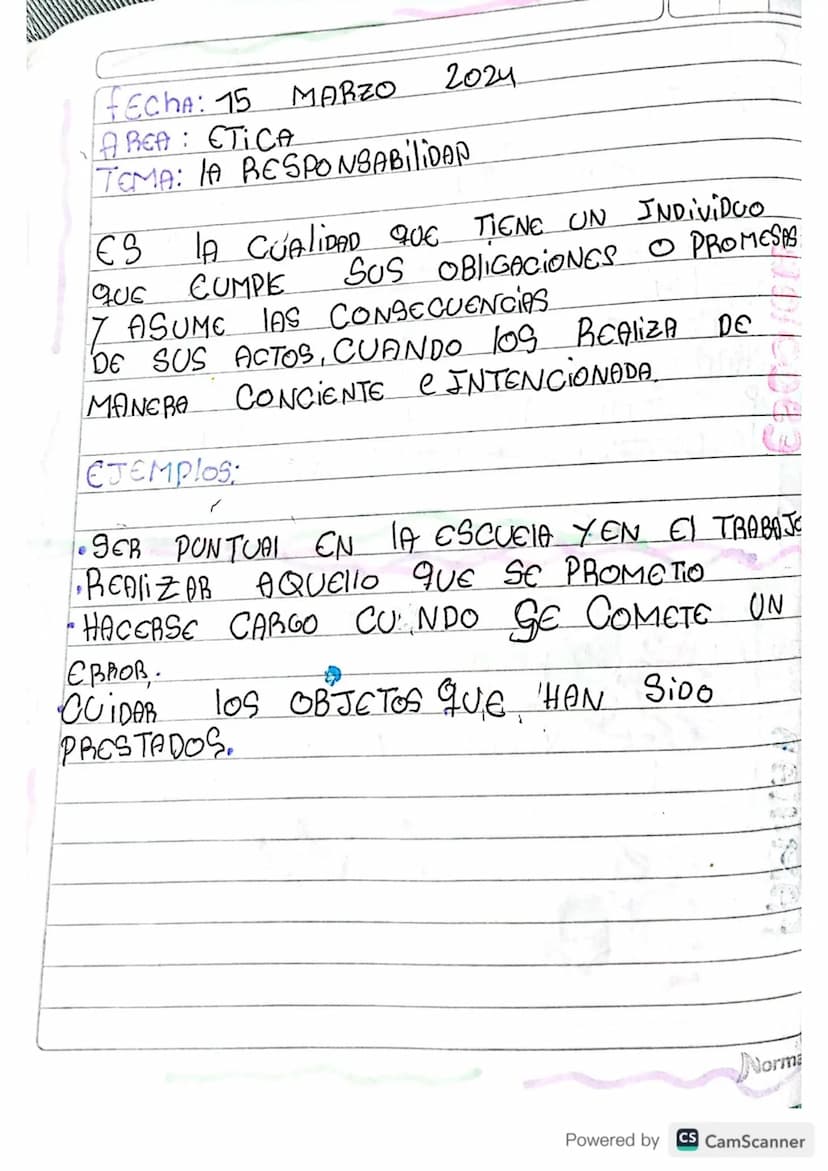 FECHA: 15 MARZO 2024
AREA: ETICA
TEMA: LA RESPONSABILIDAD
ES LA CUALIDAD QUE TIENE UN INDIVIDUO
QUE CUMPE SUS OBLIGACIONES O PROMESAS
Y ASUME LAS CONSECUENCIAS
DE SUS ACTOS, CUANDO LOS REALIZA DE
MANERA CONCIENTE e INTENCIONADA.
EJEMPLOS:
• SER PUNTUAL EN LA ESCUELA Y EN EL TRABAJO
• REALIZAR AQUELLO QUE SE PROMETIO
• HACERSE CARGO CUANDO SE COMETE UN
ERROR.
• CUIDAR LOS OBJETOS QUE HAN SIDO
PRESTADOS.
Norma
Powered by CS CamScanner